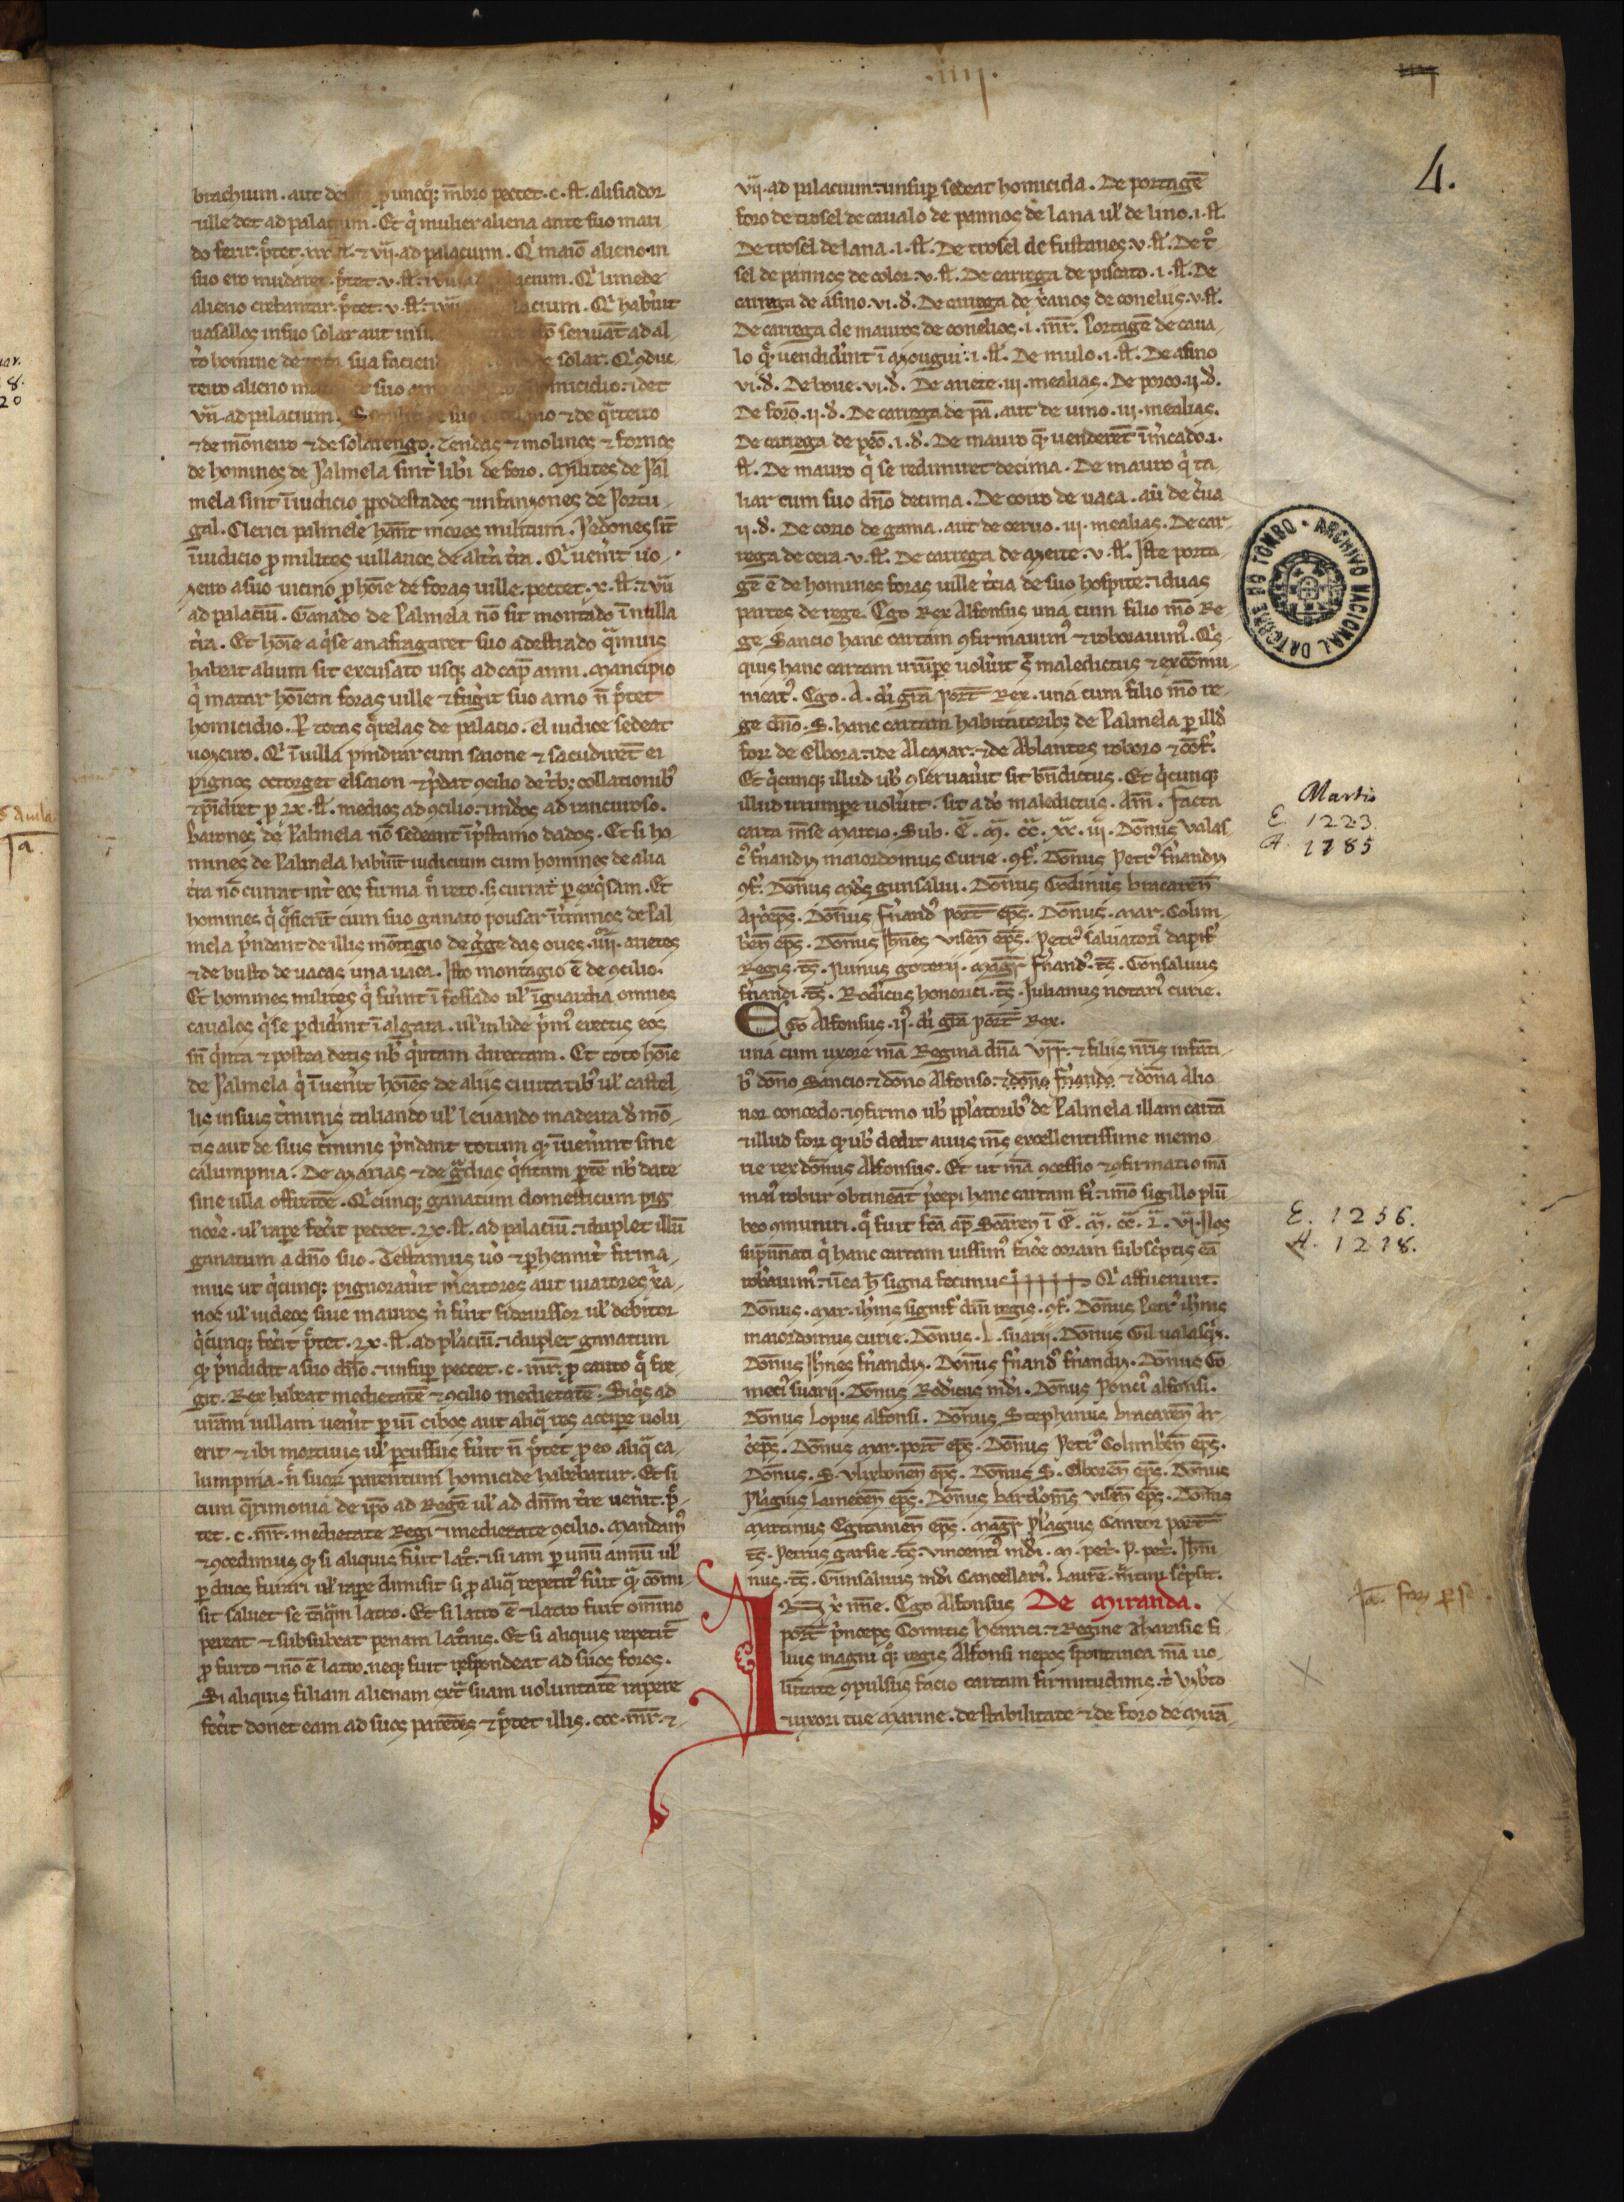 .IIII.
4.
brachium. aut de p uncqͦꝫ mͨbro pectet. c. sł. alisiador
⁊ ille det ad palacium. Et qͥ mulier aliena ante suo mari
do ferir. pͨtet. xxx. sł. ⁊ vij. ad palacium. Qͥ maiō alieno in
suo ero mudaret. pͨtet. v. sł. ⁊ vij. ad palacium. Qͥ linnede
alieno crebantar. pͨtet. v. sł. ⁊ vij lacium. Qͥ habu̾it
uasallos in suo solar aut nō seruiāt ad al
tͦo homine de sua faciend de solar. Qͥ ꝯdue
teiro alieno suo amo omicidio. ⁊ det
vij. ad palacium. ⁊ de qͣrteiro
⁊ de mōneiro ⁊ de solarengo. Tendas ⁊ molinos ⁊ fornos
de homines de Palmela sint lib̾i de foro. Milites de Pal
mela sint ī iudicio p podestades ⁊ infanzones de Portu
gal. Clerici palmele habn̄t mores militum. Pedones sīt
ī iudicio p milites uillanos de alt̾a t̾ra. Qͥ uen̾it uo-
zeiro a suo uicino p hoīe de foras uille. pectet. x. sł. ⁊ vij
ad palaciū. Ganado de Palmela nō sit montado ī nulla
t̾ra. Et hoīe a qͥ se anafragaret suo adestrado qͣmuis
habeat alium sit excusato usqꝫ ad cap̄ anni. Mancipio
qͥ matar hoīem foras uille ⁊ fug̾it suo amo nͨ pͨtet
homicidio. P totas qͣrelas de palacio. el iudice sedeat
uozeiro. Qͥ ī uilla pindrar cum saione ⁊ sacudirēt ei
pignos octorget el saion ⁊ pͨdat ꝯcilio de tͥbꝫ collationibꝰ
⁊ pindret p lx. sł. medios ad ꝯcilio. ⁊ mdͦos ad rancuroso.
Barones de Palmela nō sedeant ī pͨstamo dados. Et si ho
mines de Palmela habu̾īt iudicium cum homines de alia
t̾ra nō currat int̾ eos firma nͨ reto. sꝫ currat p exqͥsam. Et
homines qͥ qͥsierīt cum suo ganato pousar ī t̾minos de Pal
mela pͨndant de illis mōtagio de gͨge das oues. iiij. arietes
⁊ de busto de uacas una uaca. Isto montagio ē de ꝯcilio.
Et homines milites qͥ fu̾int ī fossado uł ī guardia omnes
caualos qͥ se pdid̾int ī algara. uł in lide pͥmꝰ erectis eos
sn̄ qͥnta ⁊ postea detis nb̾ qͥntam directam. Et toto hoīe
de Palmela qͥ ī uen̾it hoīes de aliis ciuitatibꝰ uł castel
lis in suis t̾minis taliando uł leuando madeira d̾ mō-
tis aut de suis t̾minis pͨndant totum qꝫ ī uen̾int sine
calumpnia. De azarias ⁊ de gͣrdias qͥntam ptē nb̾ date
sine ulla offretiōe. Qͥcunqꝫ ganatum domesticum pig
noͨre. uł rape fec̾it pectet. lx. sł. ad palaciū. ⁊ duplet illū
ganatum a dn̄o suo. Testamus uo ⁊ phennit̾ firma-
mus ut qͥcunqꝫ pignorau̾it m̾catores aut uiatores xͥa-
nos uł iudeos siue mauros nͥ fu̾it fideiussor uł debitor
qͥcūqꝫ fec̾it pͨtet. lx. sł. ad placiū. ⁊ duplet ganatum
qꝫ pͨndidit a suo dn̄o. ⁊ insup pectet. c. mr̄. p cauto qͣ fre
git. Rex habeat medietatē ⁊ ꝯcilio medietatē. Siqͥs ad
urām uillam uen̾it p uī cibos aut aliqͣ res accipe uolu-
erit ⁊ ibi mortuus uł pcussus fu̾it nͨ pͨtet p eo aliqͣ ca-
lumpnia. nͨ suoꝝ parentum homicide habebatur. Et si
cum qͣrimonia de ip̄o ad Regē uł ad dn̄m t̾re uen̾it. pͨ-
tet. c. mr̄. medietate Regi ⁊ medietate ꝯcilio. Mandamꝰ
⁊ ꝯcedimus qꝫ si aliquis fu̾it latͦ. ⁊ si iam p unū annū uł
p duos furari uł rape dimisit si p aliqͣ repetitꝰ fu̾it qͣ comi
sit saluet se tāqͣm latro. Et si latro ē ⁊ latro fuit omīno
pereat ⁊ subsubeat penam latͦnis. Et si aliquis repetit̾
p furto ⁊ nō ē latro. neqꝫ fuit respondeat ad suos foros.
Si aliquis filiam alienam extͣ suam uoluntatē rapere
fec̾it donet eam ad suos parētes ⁊ pͨtet illis. ccc. mr̄. ⁊
vij. ad palacium. ⁊ insup sedeat homicida. De portagē
foro de trosel de caualo de pannos de lana uł de lino. i. sł.
De trosel de lana. i. sł. De trosel de fustanes. v. sł. De tͦ
sel de pannos de color. v. sł. De carrega de piscato. i. sł. De
carrega de asino. vi. đ. De carrega de xͥanos de conelius. v. sł.
De carrega de mauros de conelios. i. mr̄. Portagē de caua-
lo qͥ uendid̾int ī azougui. i. sł. De mulo. i. sł. De asino
vi. đ. De boue. vi. đ. De ariete. iij. mealias. De porco. ij. đ.
De forō. ij. đ. De carrega de pā. aut de uino. iij. mealias.
De carrega de peō. i. đ. De mauro qͥ uenderēt ī m̾cado. i.
sł. De mauro qͥ se redimiret decima. De mauro qͥ ta-
liar cum suo dn̄o decima. De coiro de uaca. aū de c̾ua
ij. đ. De corio de gama. aut de ceruo. iij. mealias. De car-
rega de cera. v. sł. De carrega de azeite. v. sł. Iste porta-
gē ē de homines foras uille t̾cia de suo hospite. ⁊ duas
partes de rege. Ego Rex Alfonsus una cum filio mō Re
ge Sancio hanc cartam ꝯfirmauimꝰ ⁊ roborauimꝰ. Qͥs
quis hanc cartam irrūpe uolu̾it sͭ maledictus ⁊ excōmu-
nicatꝰ. Ego. A. di grā Port̄ Rex. una cum filio mō re-
ge dn̄o. S. hanc cartam habitatoribꝫ de Palmela p illđ
foꝝ de Elbora. ⁊ de Alcazar. ⁊ de Ablantes roboro ⁊ cōf.
Et qͥcunqꝫ illud ub̾ ꝯseruau̾it sit bn̄dictus. Et qͥcunqꝫ
illud irrumpe uolu̾it. sit a dō maledictus. Am̄. Facta
carta m̄se Marcio. Sub. E. M. CC. XX. III. Domnus Valas-
cꝰ fn̾andiz maiordomus Curie. ꝯf. Domnus Petrꝰ fn̾andiz
ꝯf. Domnus Mđs gunsalui. Domnus Godinus bracarēn
Arc̾eps. Domnus fn̾andꝰ Port̄ eps. Domnus. Mar. Colim-
b̾en eps. Domnus Ioh̄nes Visen̄ eps. Petrꝰ saluatorͥ dapif
Regis. ts̄. Nunus goterij. Magr̄ fn̾andꝰ. ts̄. Gonsaluus
fn̾andi. ts̄. Rodicus honorici. ts̄. Iulianus notarꝰ curie.
Ego Alfonsus. ijꝰ. di grā Port̄ Rex.
una cum uxore mā Regina dn̄a Vrr̄. ⁊ filiis nr̄is infāti-
bꝰ dōno Sancio. ⁊ dōno Alfonso. ⁊ dōno fn̾ando ⁊ dōna Alio
nor concedo. ⁊ ꝯfirmo ub̾ pp̄latoribꝰ de Palmela illam cartā
⁊ illud foꝝ qꝫ ub̾ dedit auus ms̄ excellentissime memo-
rie rex domnus Alfonsus. Et ut mā ꝯcessio ⁊ ꝯfirmatio mā
maiꝰ robur obtineāt pͨcepi hanc cartam fi. ⁊ mō sigillo plū-
beo cōmuniri. qͣ fuit fc̄a ap̄ Scāren ī E. M. CC. L. VI. Nos
sup̄nn̄ati qͥ hanc cartam iussimꝰ fac̾e coram subsc̾ptis eā
rob̾auimꝰ. ⁊ ī ea h signa fecimus Qͥ affuerunt.
Domnus. Mar. ioh̄nis signif dn̄i regis. ꝯf. Domnus Petrꝰ ioh̄nis
maiordomus curie. Domnus. L. suarij. Domnus Gil ualasqͥz.
Domnus Ioh̄nes fn̾andiz. Domnus fn̾andꝰ fn̾andiz. Domnus Go
mecꝰ suarij. Domnus Rodicus mđi. Domnus Poncꝰ alfonsi.
Domnus Lopus alfonsi. Domnus Stephanus bracarēn Ar-
c̾eps. Domnus Mar. Port̄ eps. Domnus Petrꝰ Colimb̾en eps.
Domnus. S. Vlixbonēn eps. Domnus S. Elborēn eps. Domnus
Pelagius Lamecēn eps. Domnus bartꝰlomeꝰ Visen̄ eps. Domnus
Martinus Egitaniēn eps. Magr̄ Pelagius Cantor Port̄
ts̄. Petrus garsie. ts̄. Vincentiꝰ mđi. M. pet̾. P. pet̾. Ioh̄ni
nus. ts̄. Gunsaluus mđi Cancellariꝰ. Laurē. mͨtinꝰ scͥpsit.
De Miranda.
In xͥ nn̄e. Ego Alfonsus
port̄ pͥnceps Comitis Henrici. ⁊ Regine Tharasie fi-
lius magni qͦꝫ regis Alfonsi nepos spontanea mā uo-
lūtate ꝯpulsus facio cartam firmitudinis. tͥ Vzb̾to
⁊ uxori tue Marine. de stabilitate ⁊ de foro de Mirā-
Martio
E. 1223.
A. 1185
E. 1256.
A. 1218.
ARCHIVO NACIONAL DA TORRE DO TOMBO